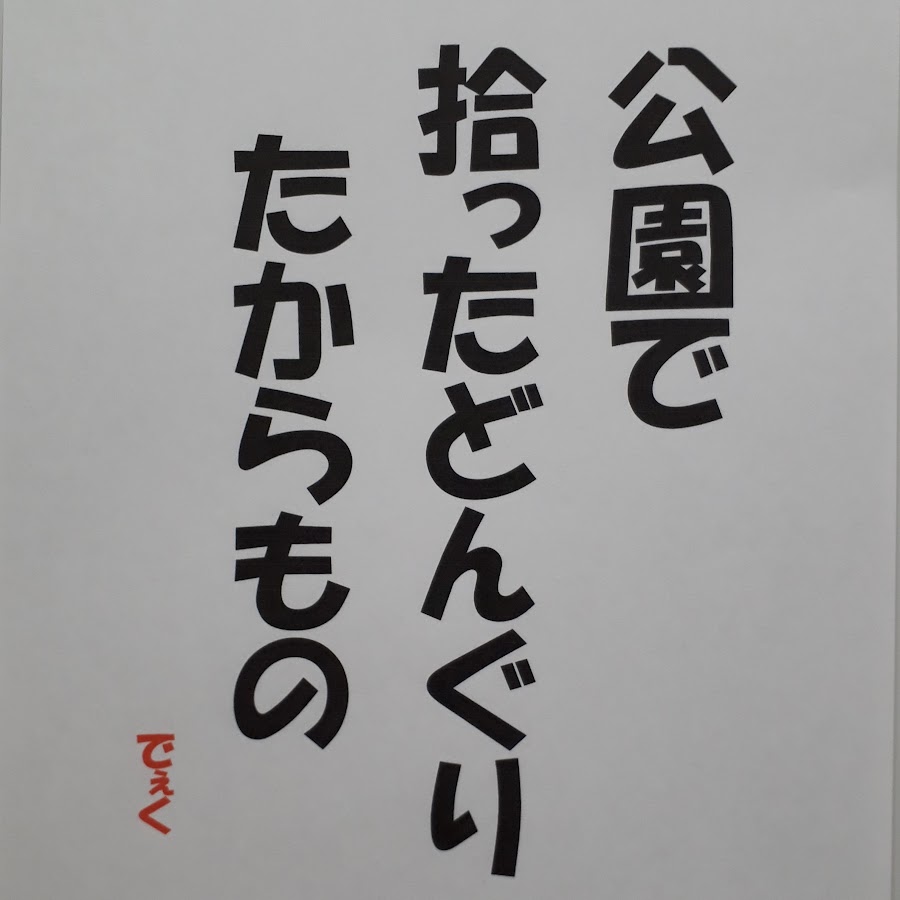 公園で
拾ったどんぐり
たからもの
でぇく